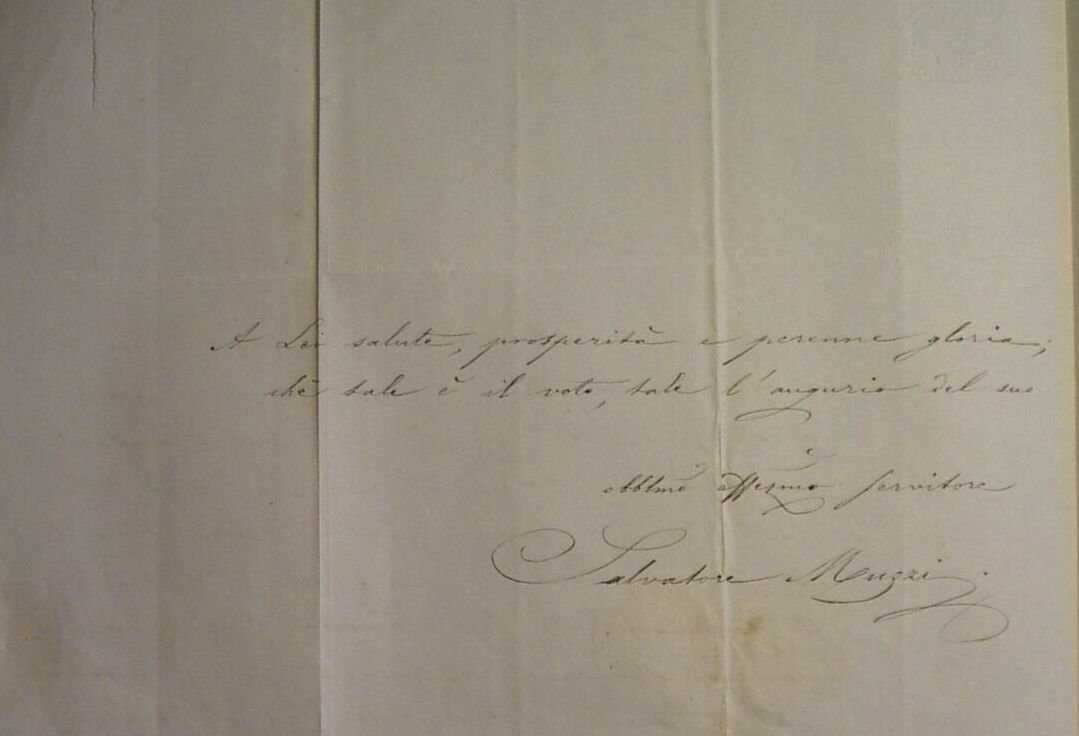 A Lei salute, prosperità e perenne gloria;
chè tale è il voto, tale l'augurio del suo
obblmo affezmo servitore
Salvatore Muzzi